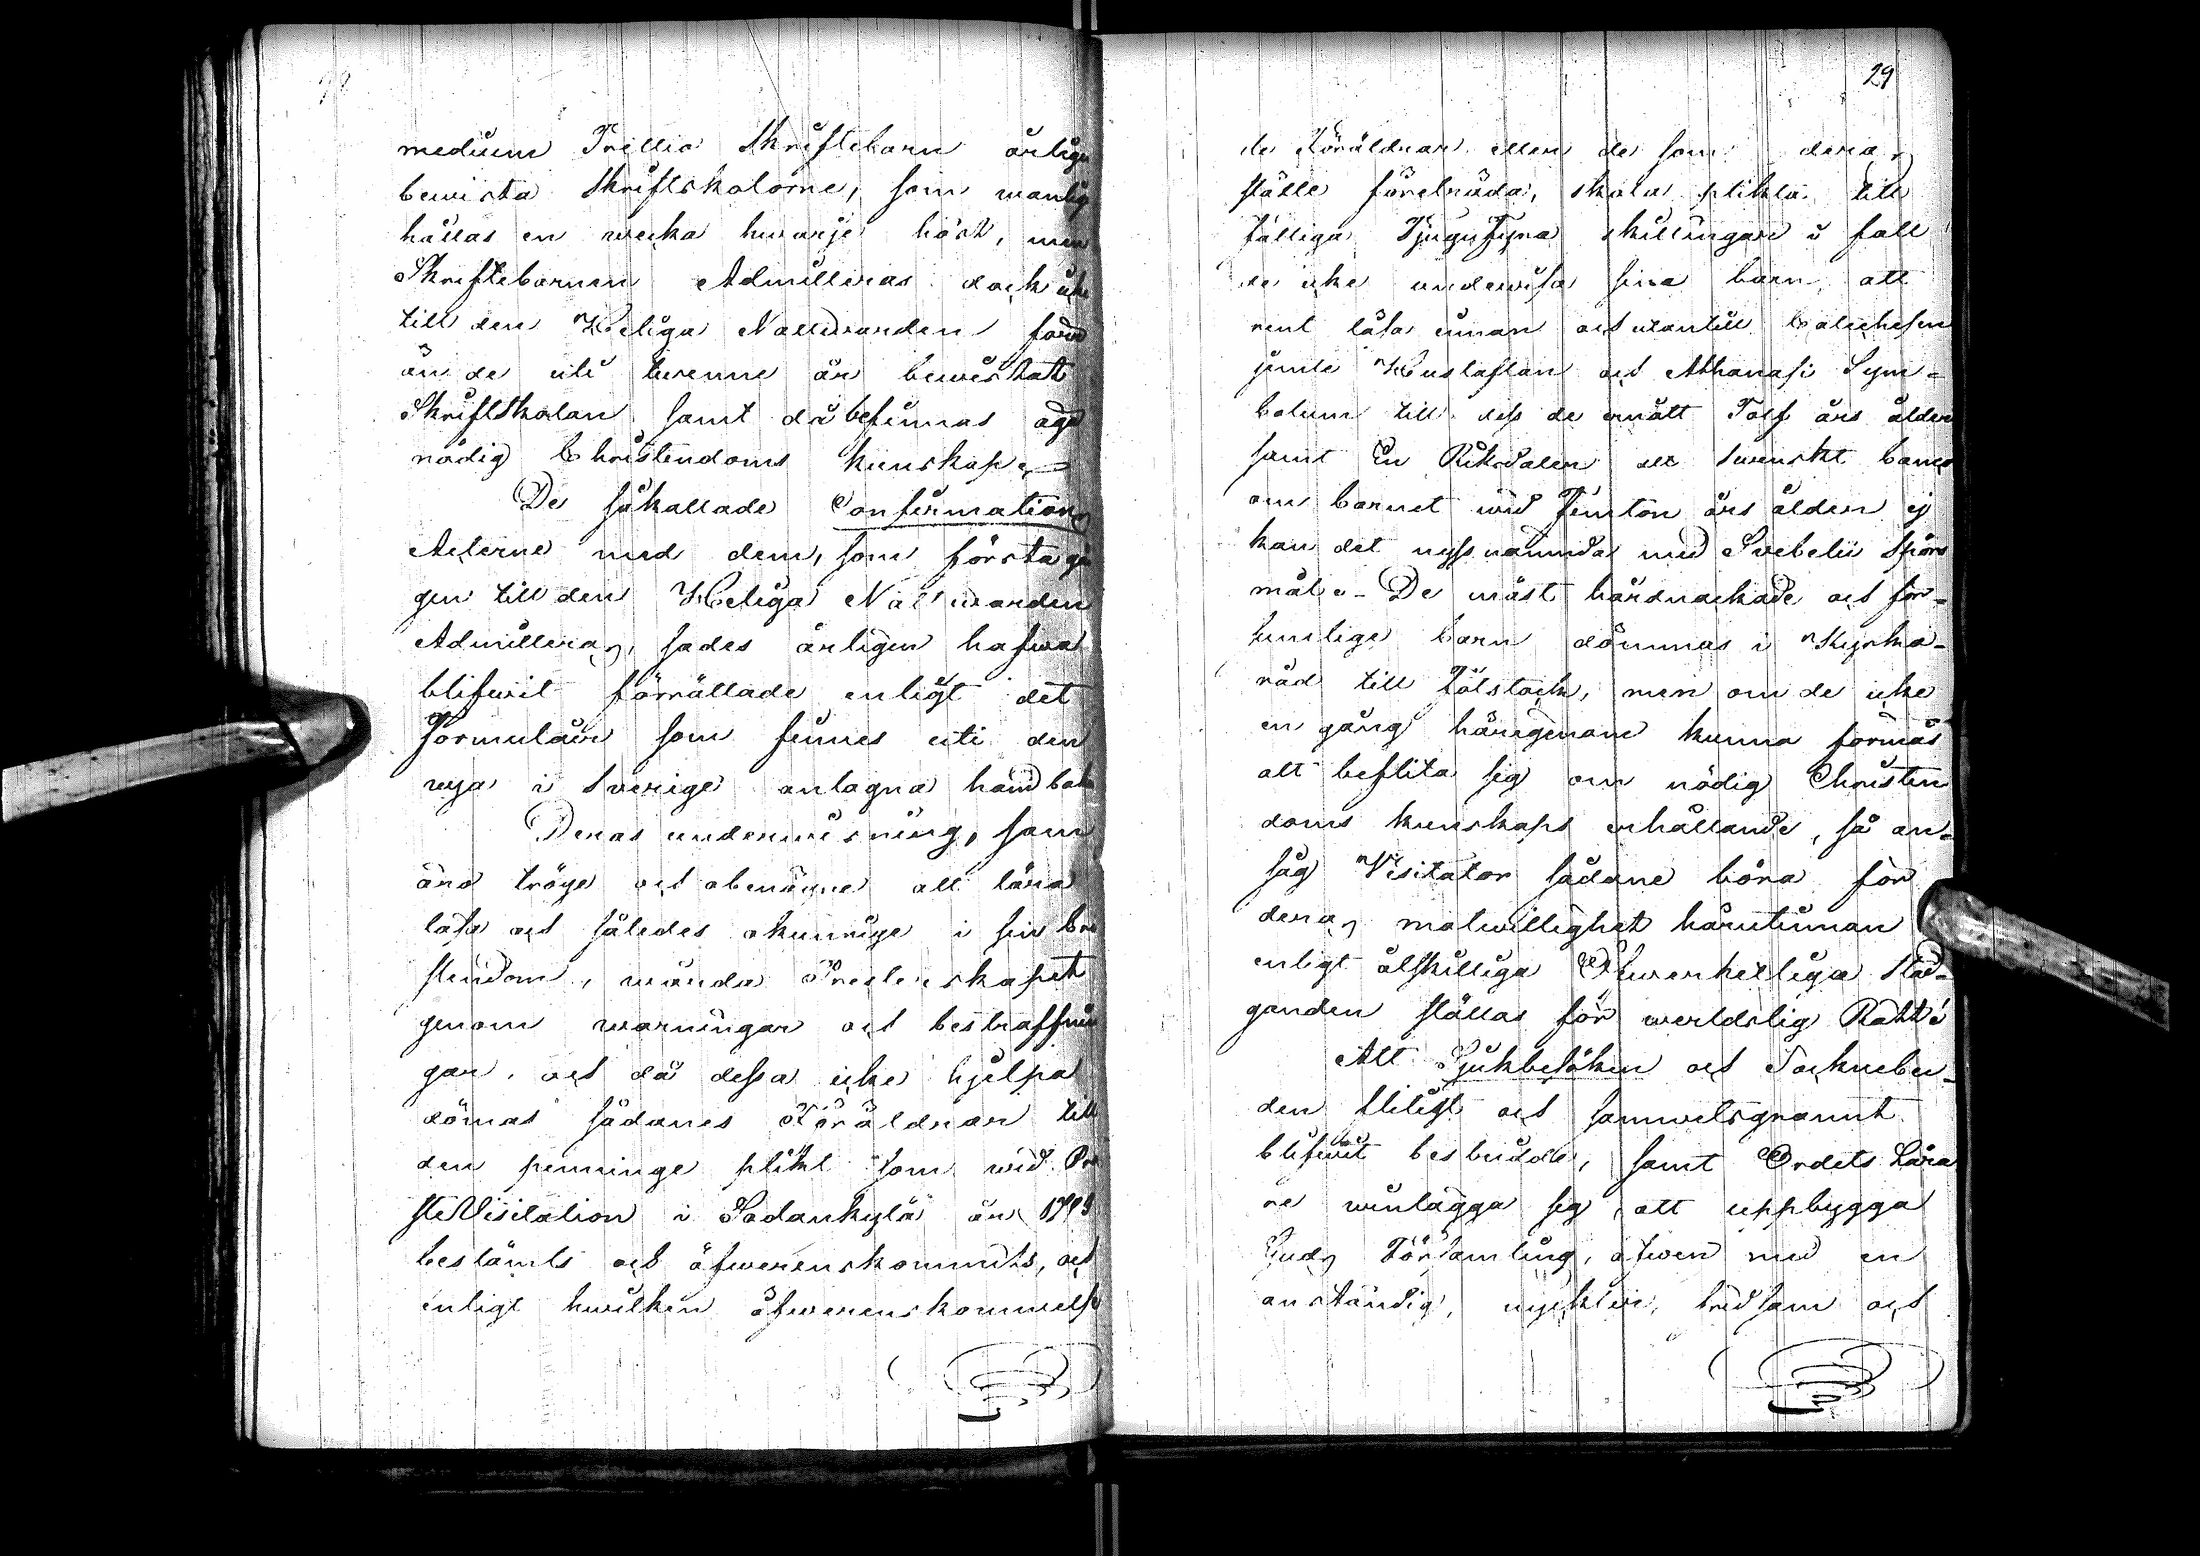 medium Trettio Skriftebarn årlige
bewista Skriftskolorne, som wanlig
hållas en wecka hwarje höst, men
Skriftebarnen Admitteras dock icke
till den Heliga Nattwarden förr
än de uti twenne år bewistat
Skriftskolan samt då befinnas äga
nödig Christendoms kunskap.
De såkallade Confirmations
Acterne med dem, som första gå
gen till den Heliga Nattwarden
Admitteras, sades årligen hafwa
blifwit förrättade enligt det
Formulair som finnes uti den
nya i Sverige antagna handbok
Deras underwisning, som
äro tröge och obenägne att lära
läsa och således okunnige i sin Cri
stendom, wårda Presterskapet
genom warningar och bestraffnin
gar, och då dessa icke hjelpa
dömas sådanes Föräldrar till
den penninge plikt som wid Pro
steVisitation i Sodankylä år
bestämts och öfwerenskommits, och
enligt hwilken öfwerenskommelse
29
de Föräldrar eller de som deras
ställe företräda, skola plikta till
fälliga Tjugufyra skillingar i fall
de icke underwisa sina barn, att
rent läsa innan och utantill Catechesen
jemte Hustaflan och Athanasi Sym-
bolum till dess de ernått Tolf års ålder
samt En Riksdaler allt Swenskt banco
om barnet wid Femton års ålder ej
kan det nyssnämnda med Svebelii Spörs
mål. De mäst hårdnackade och för-
sumlige barn dömmas i Kyrko-
råd till Fotstock, men om de icke
en gång härigenom kunna förmås
att beflita sig om nödig Christen
doms kunskaps erhållande, så an-
såg Visitator sådane böra för
deras motwillighet härutinnan
enligt åtskilliga Öfwerhetliga Stad-
ganden ställas för werldslig Rätt.
Att Sjukbesöken och Sockneбu-
den flitigt och samwetsgrannt
blifwit bestridde, samt Ordets Lära
re winlägga sig att uppbygga
Guds Församling, äfwen med en
anständig, nyckter, fridsam och